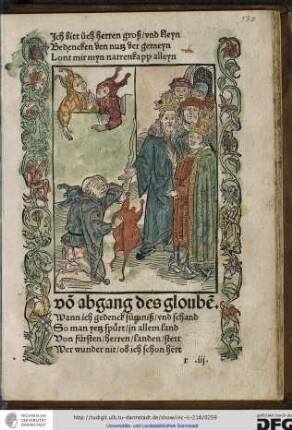 130
Jch bitt üch herren groß/vnd kleyn
Bedencken den nutz der gemeyn
Lont mir myn narrenkapp alleyn
võ abgang des gloubẽ.
Wann ich gedenck sümniß/vnd schand
So man yetz spürt/jn allem land
Von fürsten/herren/landen/stett
Wer wunder nit/ob ich schon hett
r iij.
TECHNISCHE
UNIVERSITÄT
DARMSTADT
http://tudigit.ulb.tu-darmstadt.de/show/inc-iv-218/0259
Universitäts- und Landesbibliothek Darmstadt
gefördert durch die
DFG